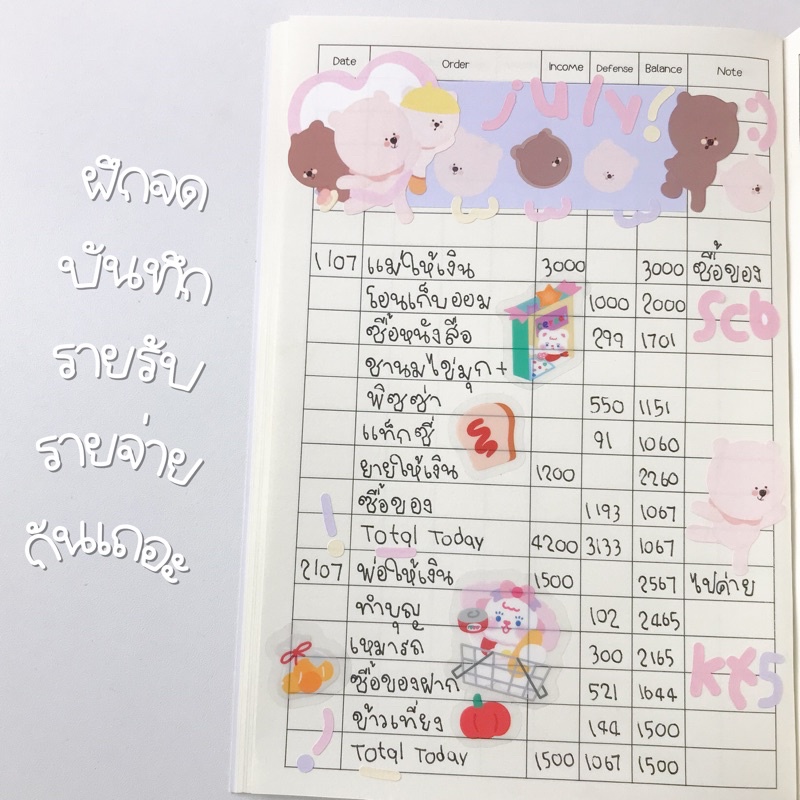 ฝึกจด
บันทึก
รายรับ
รายจ่าย
กันเถอะ
Date Order Income Defense Balance Note
July!
1/07 แม่ให้เงิน 3000 3000 ซื้อของ
โอนเก็บออม 1000 2000 Scb
ซื้อหนังสือ 299 1701
ชานมไข่มุก +
พิซซ่า 550 1151
แท็กซี่ 91 1060
ยายให้เงิน 1200 2260
ซื้อของ 1193 1067
Total Today 4200 3133 1067
2/07 พ่อให้เงิน 1500 2567 ไปค่าย
ทำบุญ 102 2465
เหมารถ 300 2165
ซื้อของฝาก 521 1644
ข้าวเที่ยง 144 1500
Total Today 1500 1067 1500